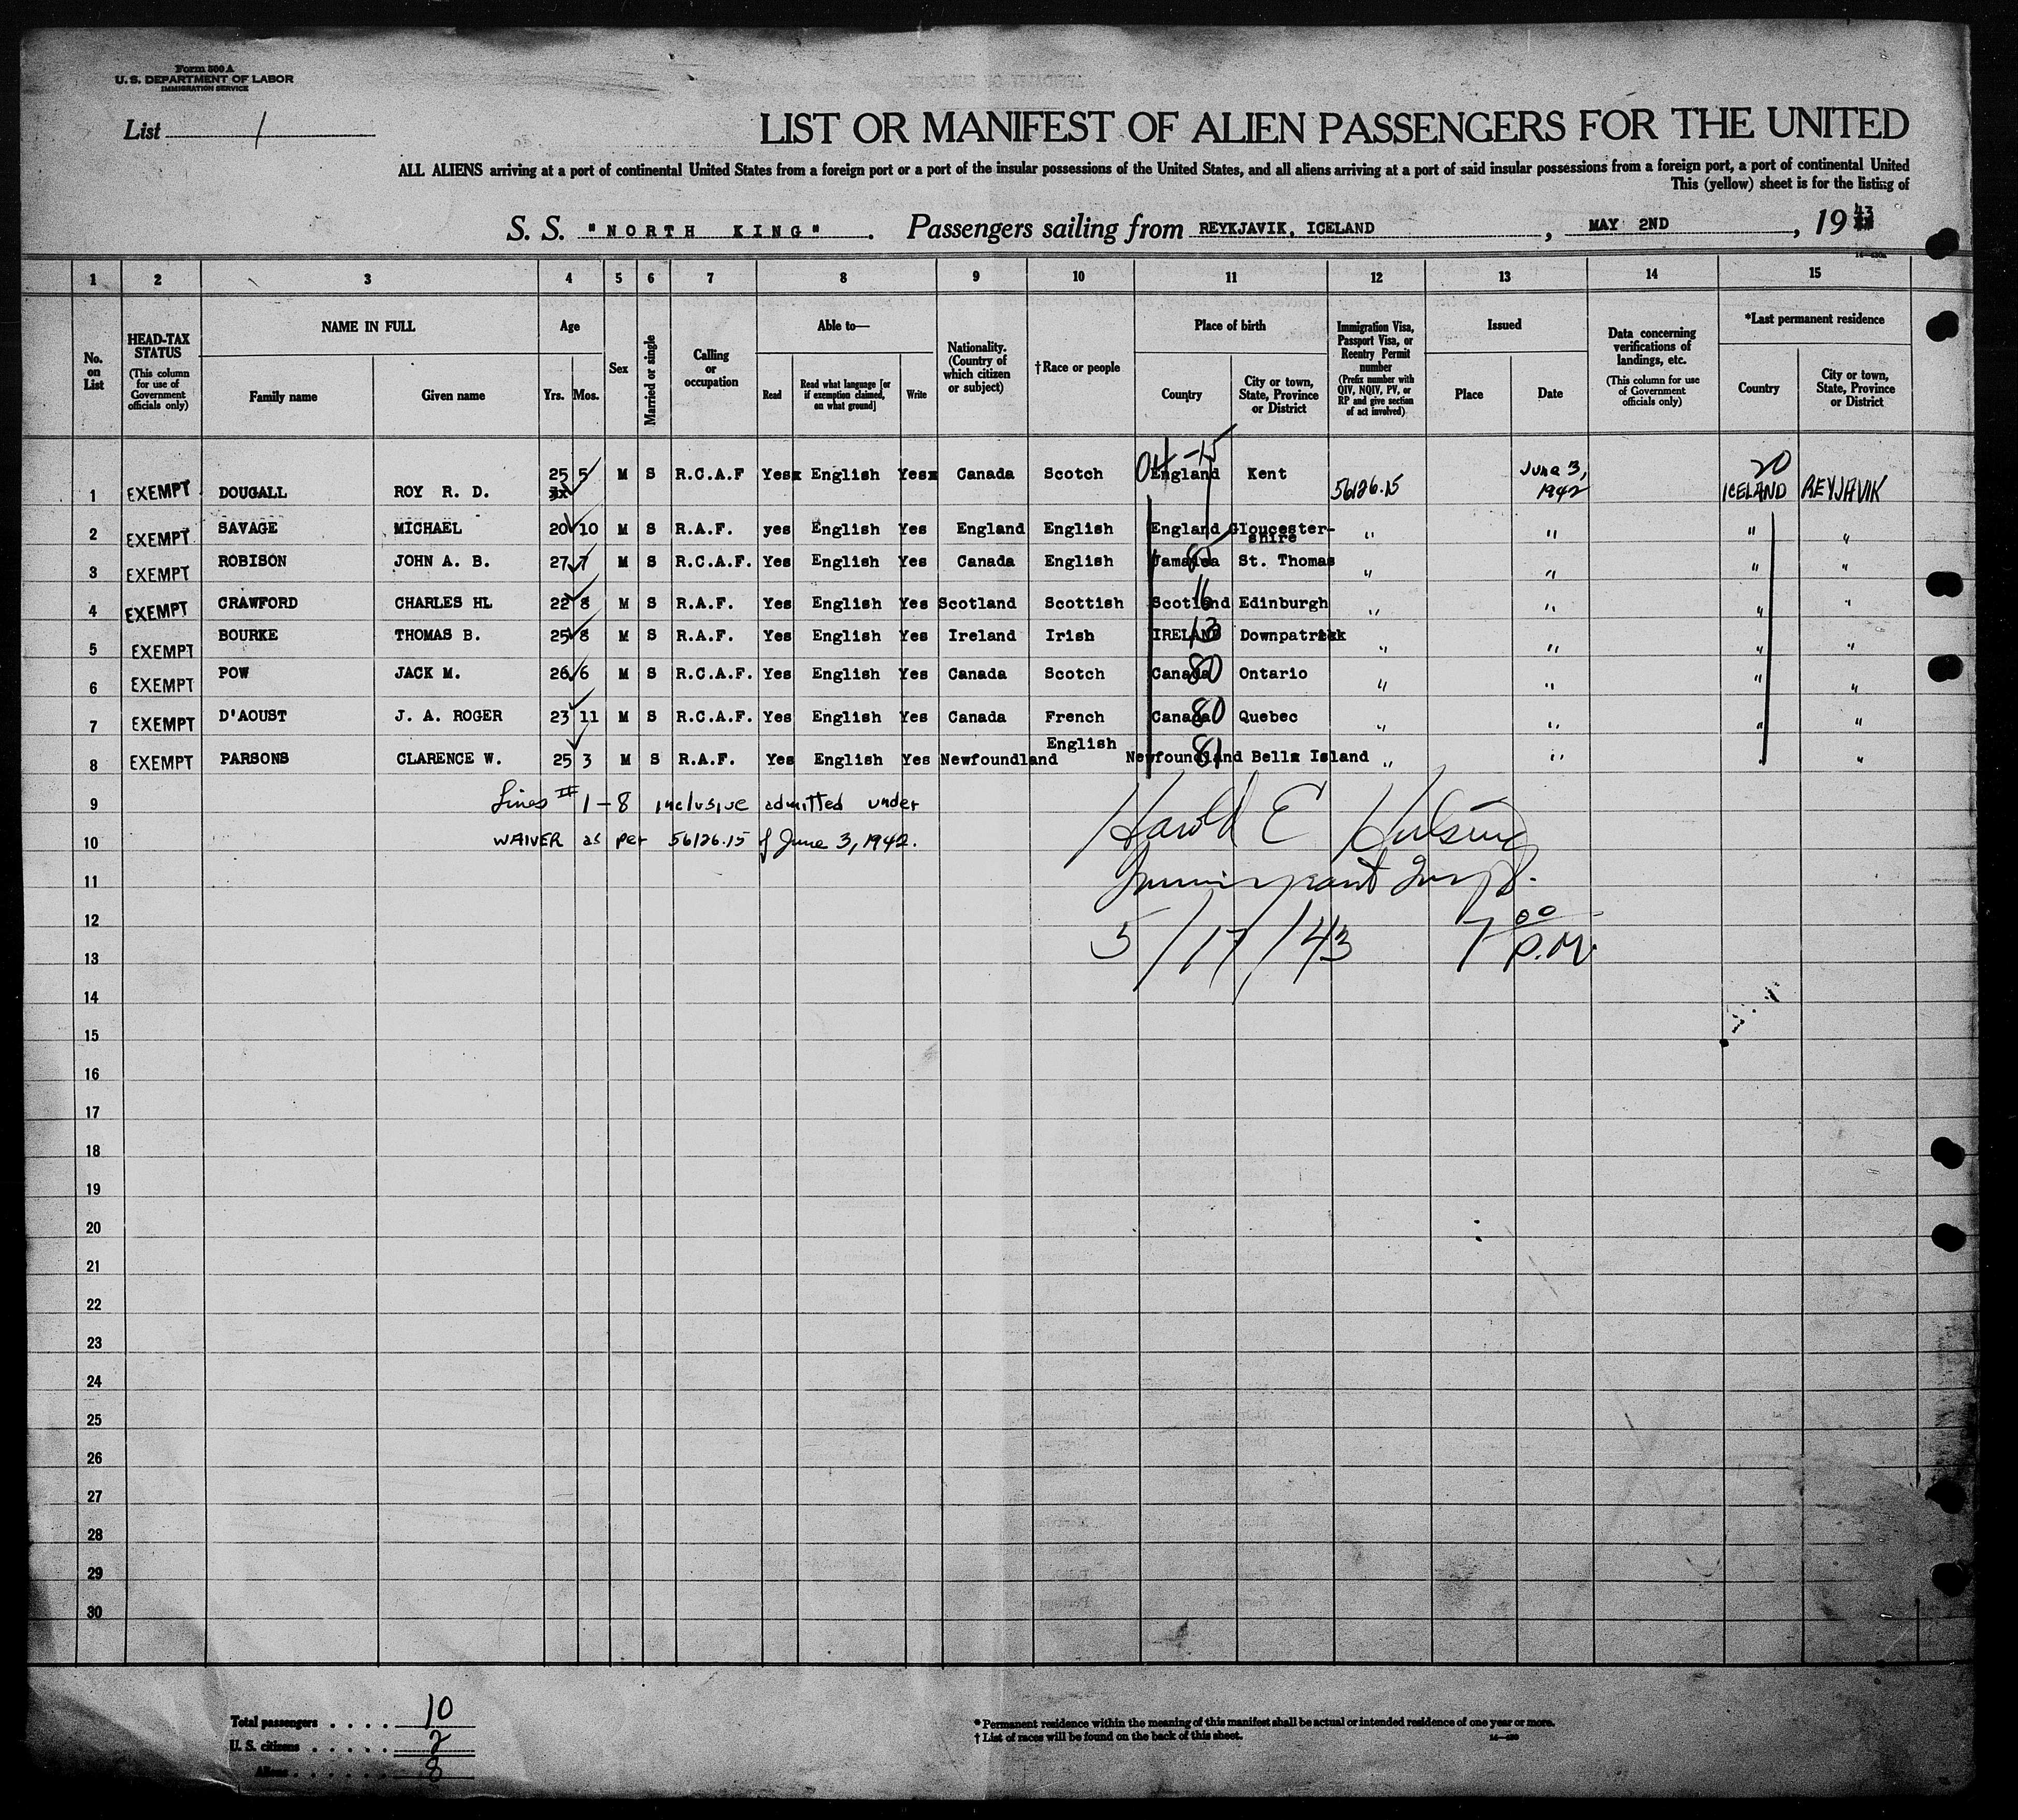 Form 500 A
U. S. DEPARTMENT OF LABOR
IMMIGRATION SERVICE
List 1
LIST OR MANIFEST OF ALIEN PASSENGERS FOR THE UNITED
ALL ALIENS arriving at a port of continental United States from a foreign port or a port of the insular possessions of the United States, and all aliens arriving at a port of said insular possessions from a foreign port, a port of continental United
This (yellow) sheet is for the listing of
S. S. "NORTH KING". Passengers sailing from REYKJAVIK, ICELAND, MAY 2ND, 1943
1 2 3 4 5 6 7 8 9 10 11 12 13 14 15
No. on List
HEAD-TAX STATUS (This column for use of Government officials only)
NAME IN FULL Family name Given name
Age Yrs. Mos.
Sex
Married or single
Calling or occupation
Able to— Read Read what language [or if exemption claimed, on what ground] Write
Nationality. (Country of which citizen or subject)
† Race or people
Place of birth Country City or town, State, Province or District
Immigration Visa, Passport Visa, or Reentry Permit number (Prefix number with QIV, NQIV, PV, or RP and give section of act involved)
Issued Place Date
Data concerning verifications of landings, etc. (This column for use of Government officials only)
*Last permanent residence Country City or town, State, Province or District
1 EXEMPT DOUGALL ROY R. D. 25 5 M S R.C.A.F Yes English Yes Canada Scotch 04-15 England Kent 56126.15 June 3, 1942 20 ICELAND REYJAVIK
2 EXEMPT SAVAGE MICHAEL 20 10 M S R.A.F. yes English Yes England English England Gloucester-shire " " " "
3 EXEMPT ROBISON JOHN A. B. 27 7 M S R.C.A.F. Yes English Yes Canada English Jamaica St. Thomas " " " "
4 EXEMPT CRAWFORD CHARLES HL 22 8 M S R.A.F. Yes English Yes Scotland Scottish Scotland 16 Edinburgh " " " "
5 EXEMPT BOURKE THOMAS B. 25 8 M S R.A.F. Yes English Yes Ireland Irish IRELAND 13 Downpatrick " " " "
6 EXEMPT POW JACK M. 26 6 M S R.C.A.F. Yes English Yes Canada Scotch Canada 80 Ontario " " " "
7 EXEMPT D'AOUST J. A. ROGER 23 11 M S R.C.A.F. Yes English Yes Canada French Canada 80 Quebec " " " "
8 EXEMPT PARSONS CLARENCE W. 25 3 M S R.A.F. Yes English Yes Newfoundland English Newfoundland 81 Bell Island " " "
9 Lines # 1-8 inclusive admitted under
10 WAIVER as per 56126.15 of June 3, 1942.
Harold E
11 Immigrant Insp.
12
5/17/43 7 00 P.M.
13
14
15
16
17
18
19
20
21
22
23
24
25
26
27
28
29
30
Total passengers . . . . 10
U. S. citizens . . . . . 2
Aliens . . . . . . 8
* Permanent residence within the meaning of this manifest shall be actual or intended residence of one year or more.
† List of races will be found on the back of this sheet.